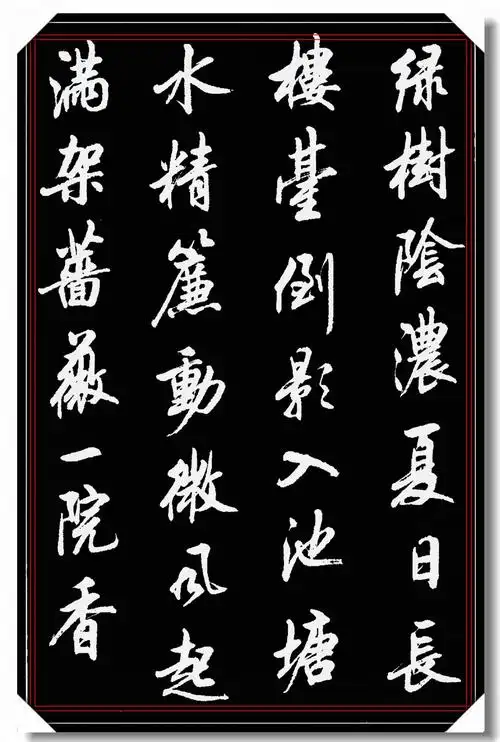 绿樹陰濃夏日長
樓臺倒影入池塘
水精簾動微風起
满架薔薇一院香